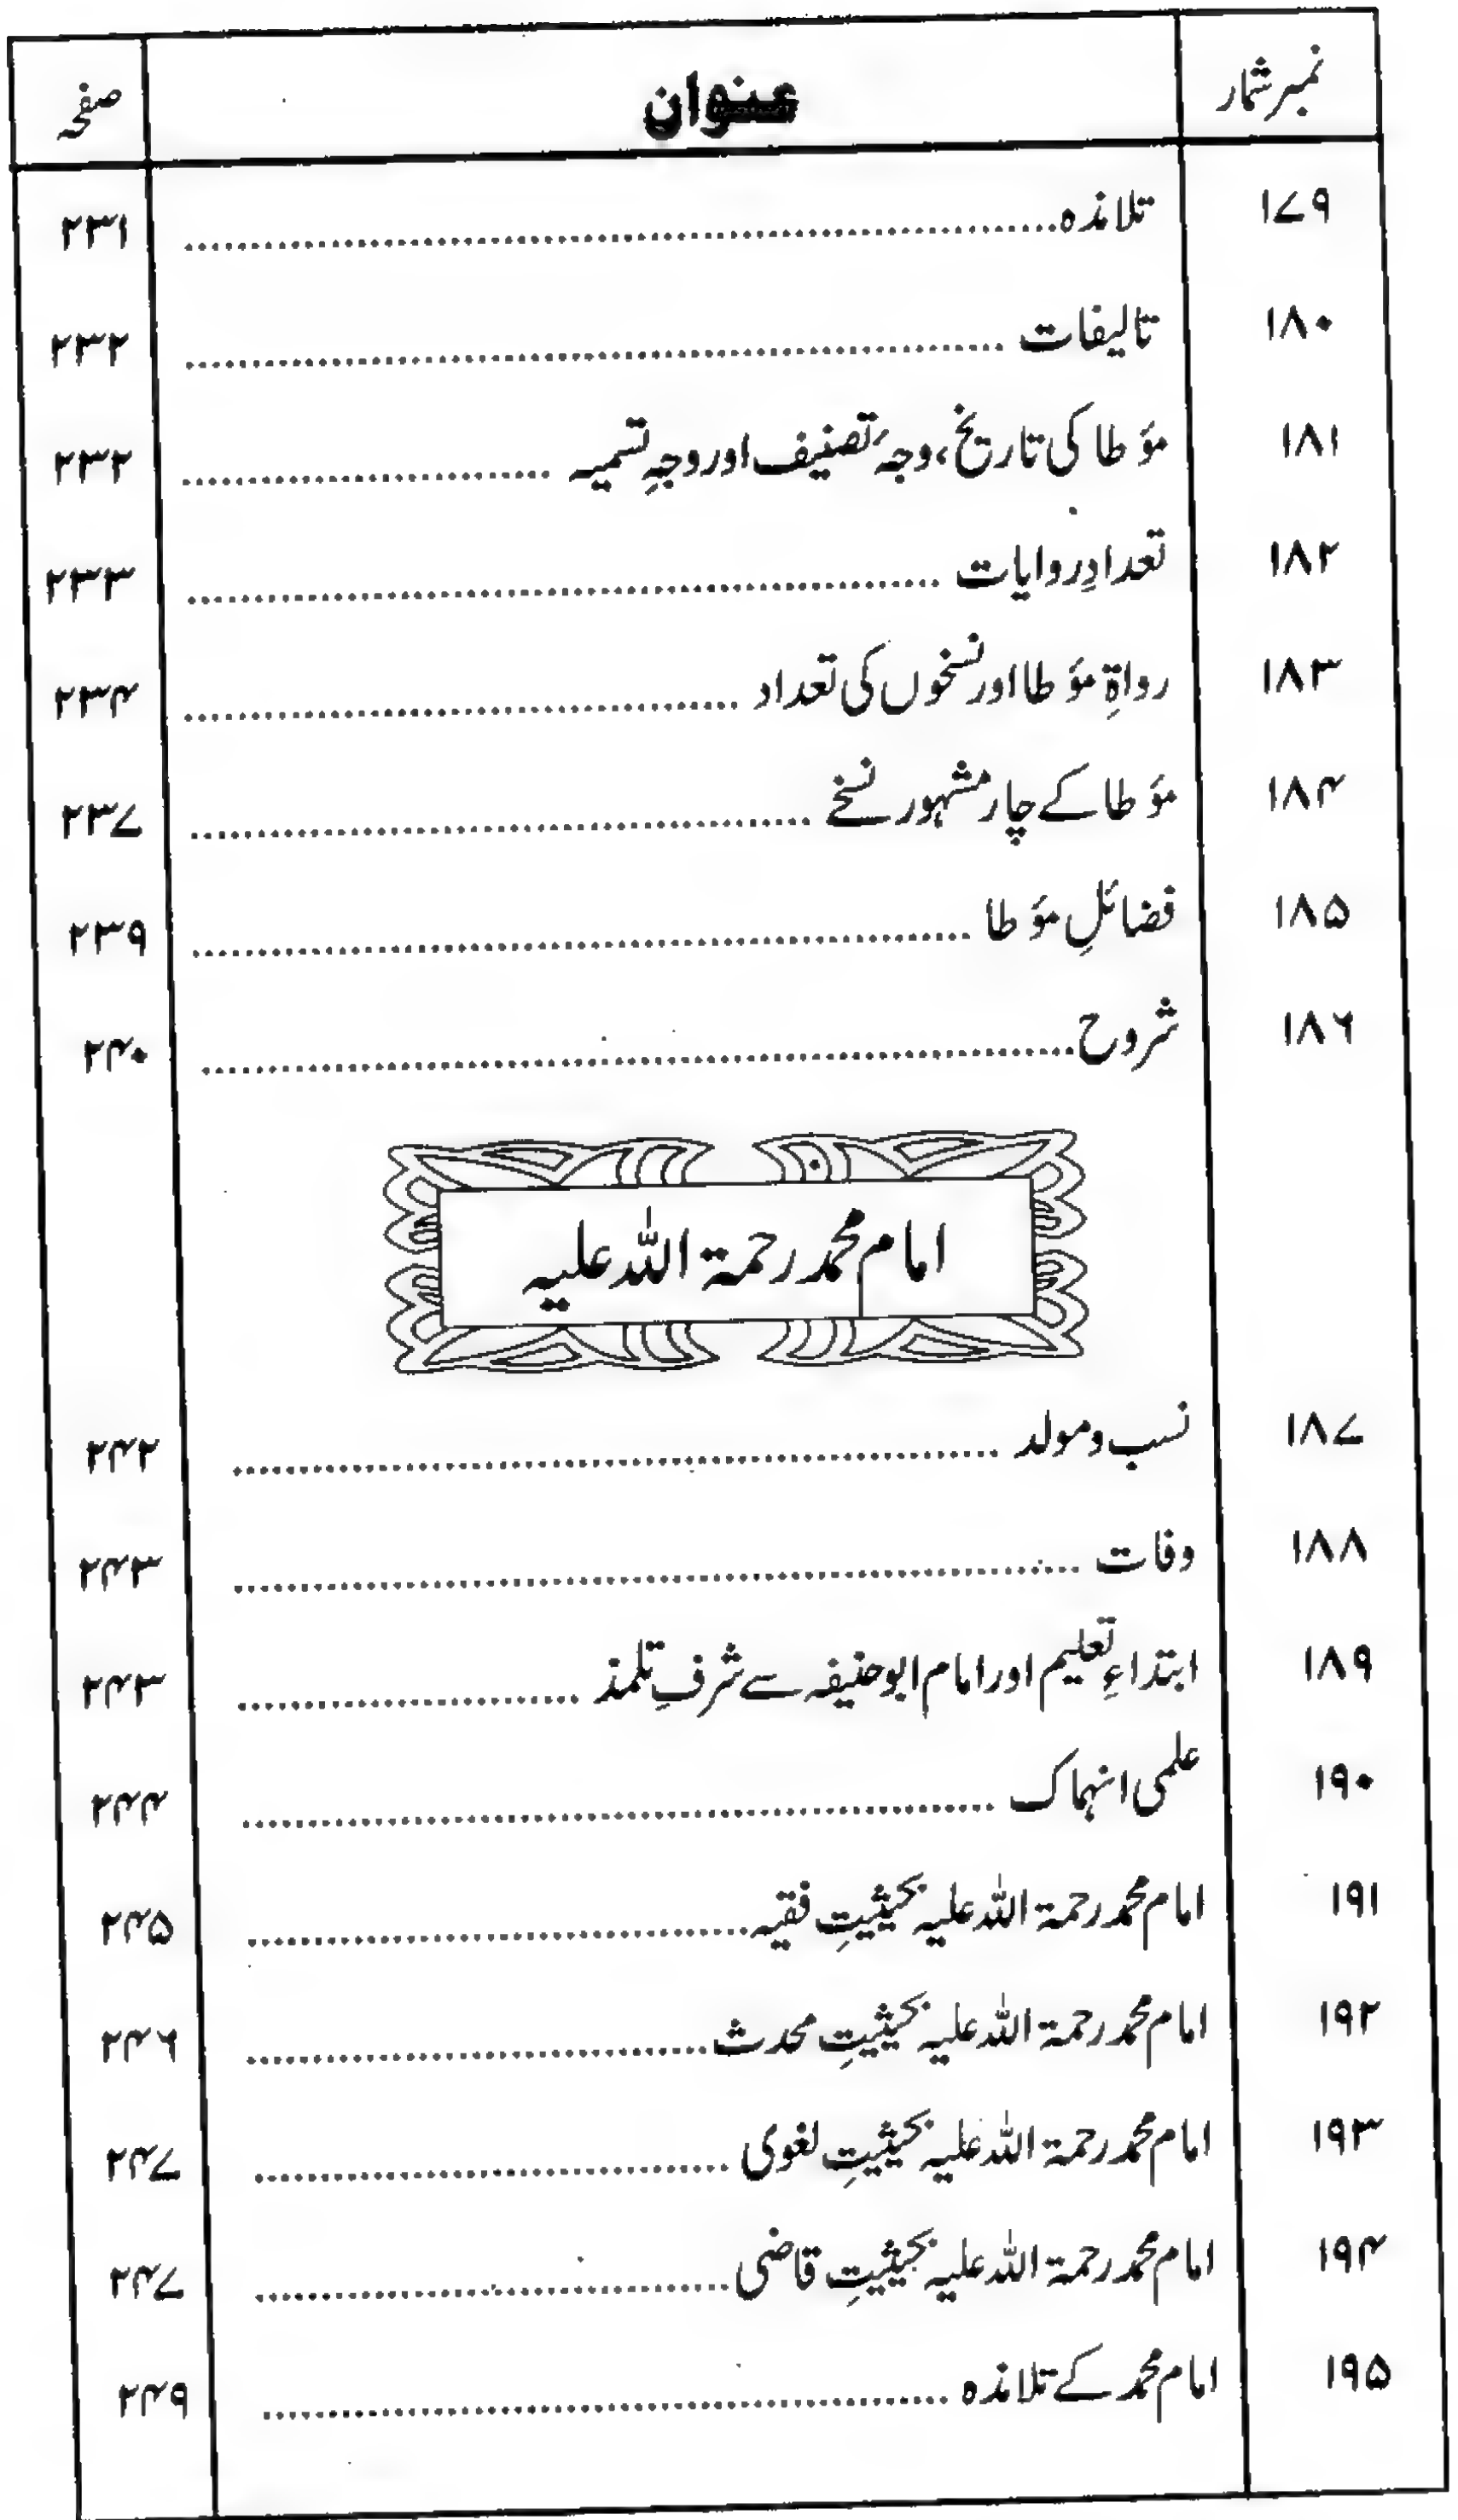 نمبر شمار عنوان صفحہ
۱۷۹ تلامذہ ۲۳۱
۱۸۰ تالیفات ۲۳۲
۱۸۱ مؤطا کی تاریخ، وجۂ تصنیف اور وجہِ تسمیہ ۲۳۲
۱۸۲ تعدادِ روایات ۲۳۳
۱۸۳ رواۃِ مؤطا اور نسخوں کی تعداد ۲۳۴
۱۸۴ مؤطا کے چار مشہور نسخے ۲۳۷
۱۸۵ فضائلِ مؤطا ۲۳۹
۱۸۶ شروح ۲۴۰
امام محمد رحمۃ اللہ علیہ
۱۸۷ نسب و مولد ۲۴۲
۱۸۸ وفات ۲۴۳
۱۸۹ ابتداءِ تعلیم اور امام ابوحنیفہ سے شرفِ تلمذ ۲۴۳
۱۹۰ علمی انہماک ۲۴۴
۱۹۱ امام محمد رحمۃ اللہ علیہ بحیثیتِ فقیہ ۲۴۵
۱۹۲ امام محمد رحمۃ اللہ علیہ بحیثیتِ محدث ۲۴۶
۱۹۳ امام محمد رحمۃ اللہ علیہ بحیثیتِ لغوی ۲۴۷
۱۹۴ امام محمد رحمۃ اللہ علیہ بحیثیتِ قاضی ۲۴۷
۱۹۵ امام محمد کے تلامذہ ۲۴۹